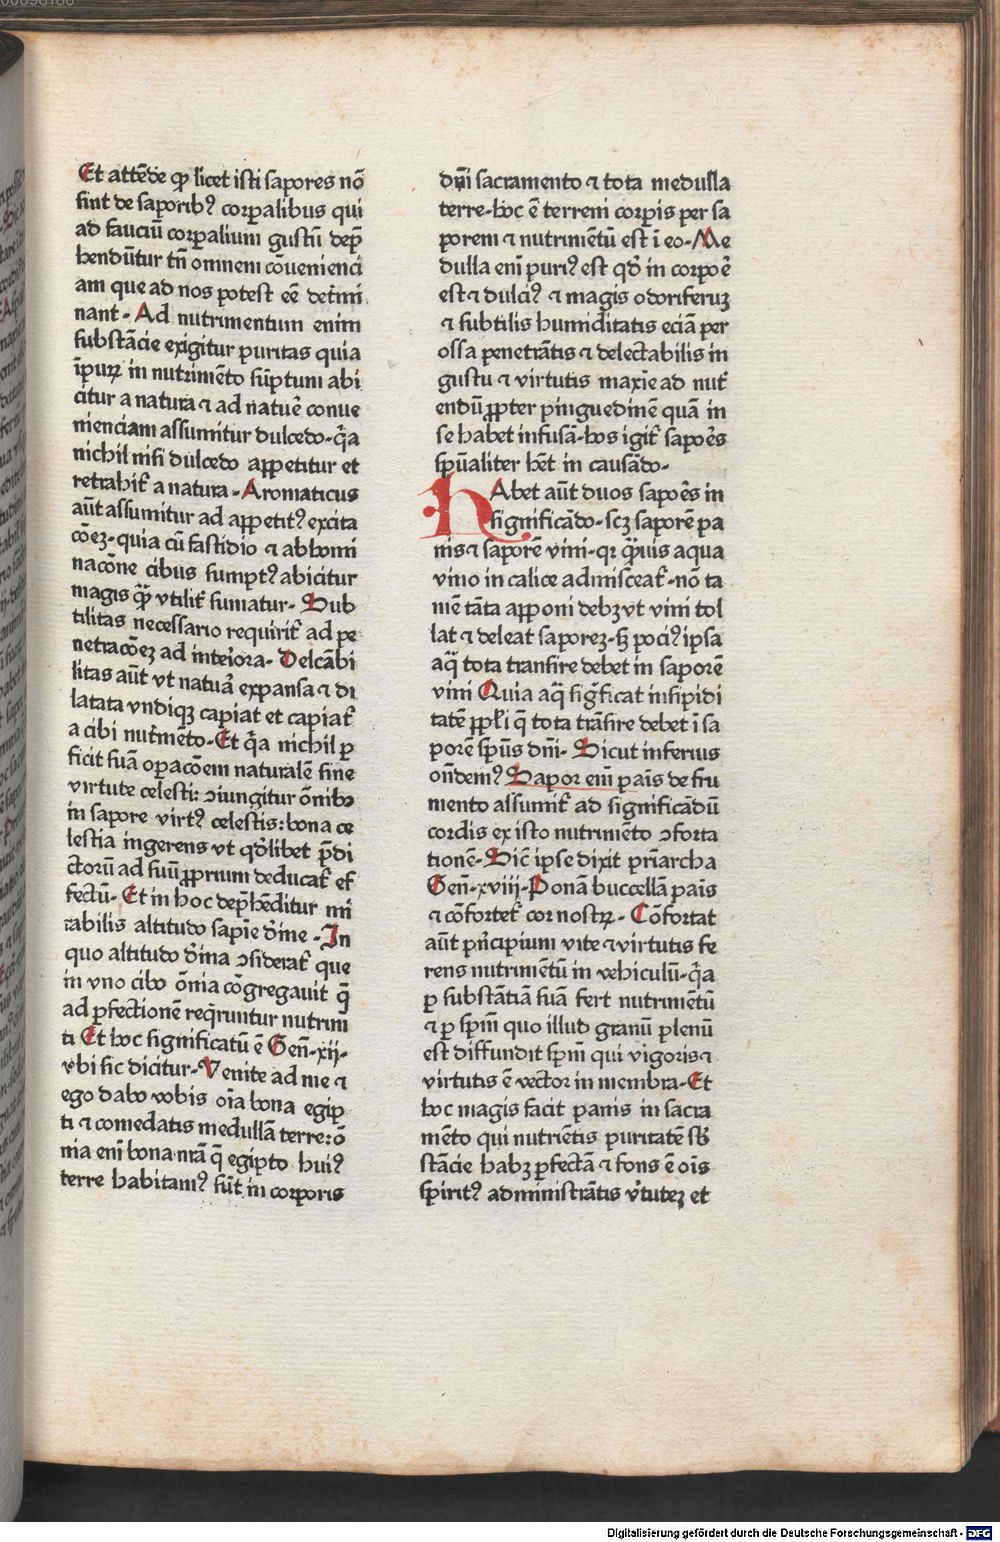 Et attēde qꝫ licet isti sapores nō
sint de saporibꝰ corꝑalibus qui
ad fauciū corꝑalium gustū dep̄
hendūtur tn̄ omnem cōuenienci
am que ad nos potest eē det̄mi
nant. Ad nutrimentum enim
substācie exigitur puritas quia
īpuꝝ in nutrimēto sūptum abi
citur a natura ⁊ ad natuē conue
nienciam assumitur dulcedo. q̄a
nichil nisi dulcedo appetitur et
retrahit̄ a natura. Aromaticus
aūt assumitur ad appetitꝰ excita
cōeꝫ. quia cū fastidio ⁊ abhomi
nacōne cibus sumptꝰ abicitur
magis qͣꝫ vtilit̄ sumatur. Sub
tilitas necessario requirit̄ ad pe
netracōeꝫ ad inteiora. Delcābi
litas aūt vt natua expansa ⁊ di
latata vndiqꝫ capiat et capiat̄
a cibi nut̄mēto. Et q̄a nichil ꝑ
ficit suā oꝑacōem naturalē sine
virtute celesti: ↄiungitur ōnibꝫ
in sapore virtꝰ celestis: bona ce
lestia ingerens vt qd̄libet p̄di
ctorū ad suū ꝓprium deducat̄ ef
fectū. Et in hoc dep̄hēditur mi
rabilis altitudo sapiē d̄ine. In
quo altitudo d̄ina ↄsiderat̄ que
in vno cibo ōnia cōgregauit q̄
ad ꝑfectionē reqͥruntur nutrim
ti Et hoc significatū ē Gen̄. xij.
vbi sic dicitur. Venite ad me ⁊
ego dabo vobis oīa bona egip
ti ⁊ comedatis medullā terre: ō
nia eni bona nrā q̄ egipto huiꝰ
terre habitamꝰ sūt in corporis
dn̄i sacramento ⁊ tota medulla
terre. hoc ē terreni corꝑis per sa
porem ⁊ nutrimētū est ī eo. Me
dulla eni puriꝰ est qd̄ in corpoē
est ⁊ dulciꝰ ⁊ magis odoriferuꝫ
⁊ subtilis humiditatis eciā per
ossa penetrātis ⁊ delectabilis in
gustu ⁊ virtutis maxīe ad nut̄
endū ꝓpter pinguedinē quā in
se habet infusā. hos igit̄ sapoēs
sp̄ualiter hēt in causādo.
HAbet aūt duos sapoēs in
significādo. scꝫ saporē pa
nis ⁊ saporē vini. qꝛ qͣꝫuis aqua
vino in calice admisceat̄. nō ta
mē tāta apponi debꝫ vt vini tol
lat ⁊ deleat saporeꝫ. sꝫ pociꝰ ipsa
aq̄ tota transire debet in saporē
vini Quia aq̄ sig̃ficat insipidi
tatē ppl̄i q̄ tota trāsire debet ī sa
porē sp̄us dn̄i. Sicut inferius
on̄demꝰ Sapor eni pais de fru
mento assumit̄ ad significādū
cordis ex isto nutrimēto ↄforta
tionē. Sic̄ ipse dixit pr̄iarcha
Gen̄. xviij. Ponā buccellā pais
⁊ cōfortet̄ cor nostꝝ. Cōfortat
aūt pn̄cipium vite ⁊ virtutis fe
rens nutrimētū in vehiculū. q̄a
ꝑ substātiā suā fert nutrimētū
⁊ ꝑ sp̄m quo illud granū plenū
est diffundit sp̄m qui vigoris ⁊
virtutis ē vector in membra. Et
hoc magis facit panis in sacra
mēto qui nutriētis puritatē sb̄
stācie habꝫ ꝑfectā ⁊ fons ē oīs
spiritꝰ administrātis v̄tuteꝫ et
Digitalisierung gefördert durch die Deutsche Forschungsgemeinschaft - DFG